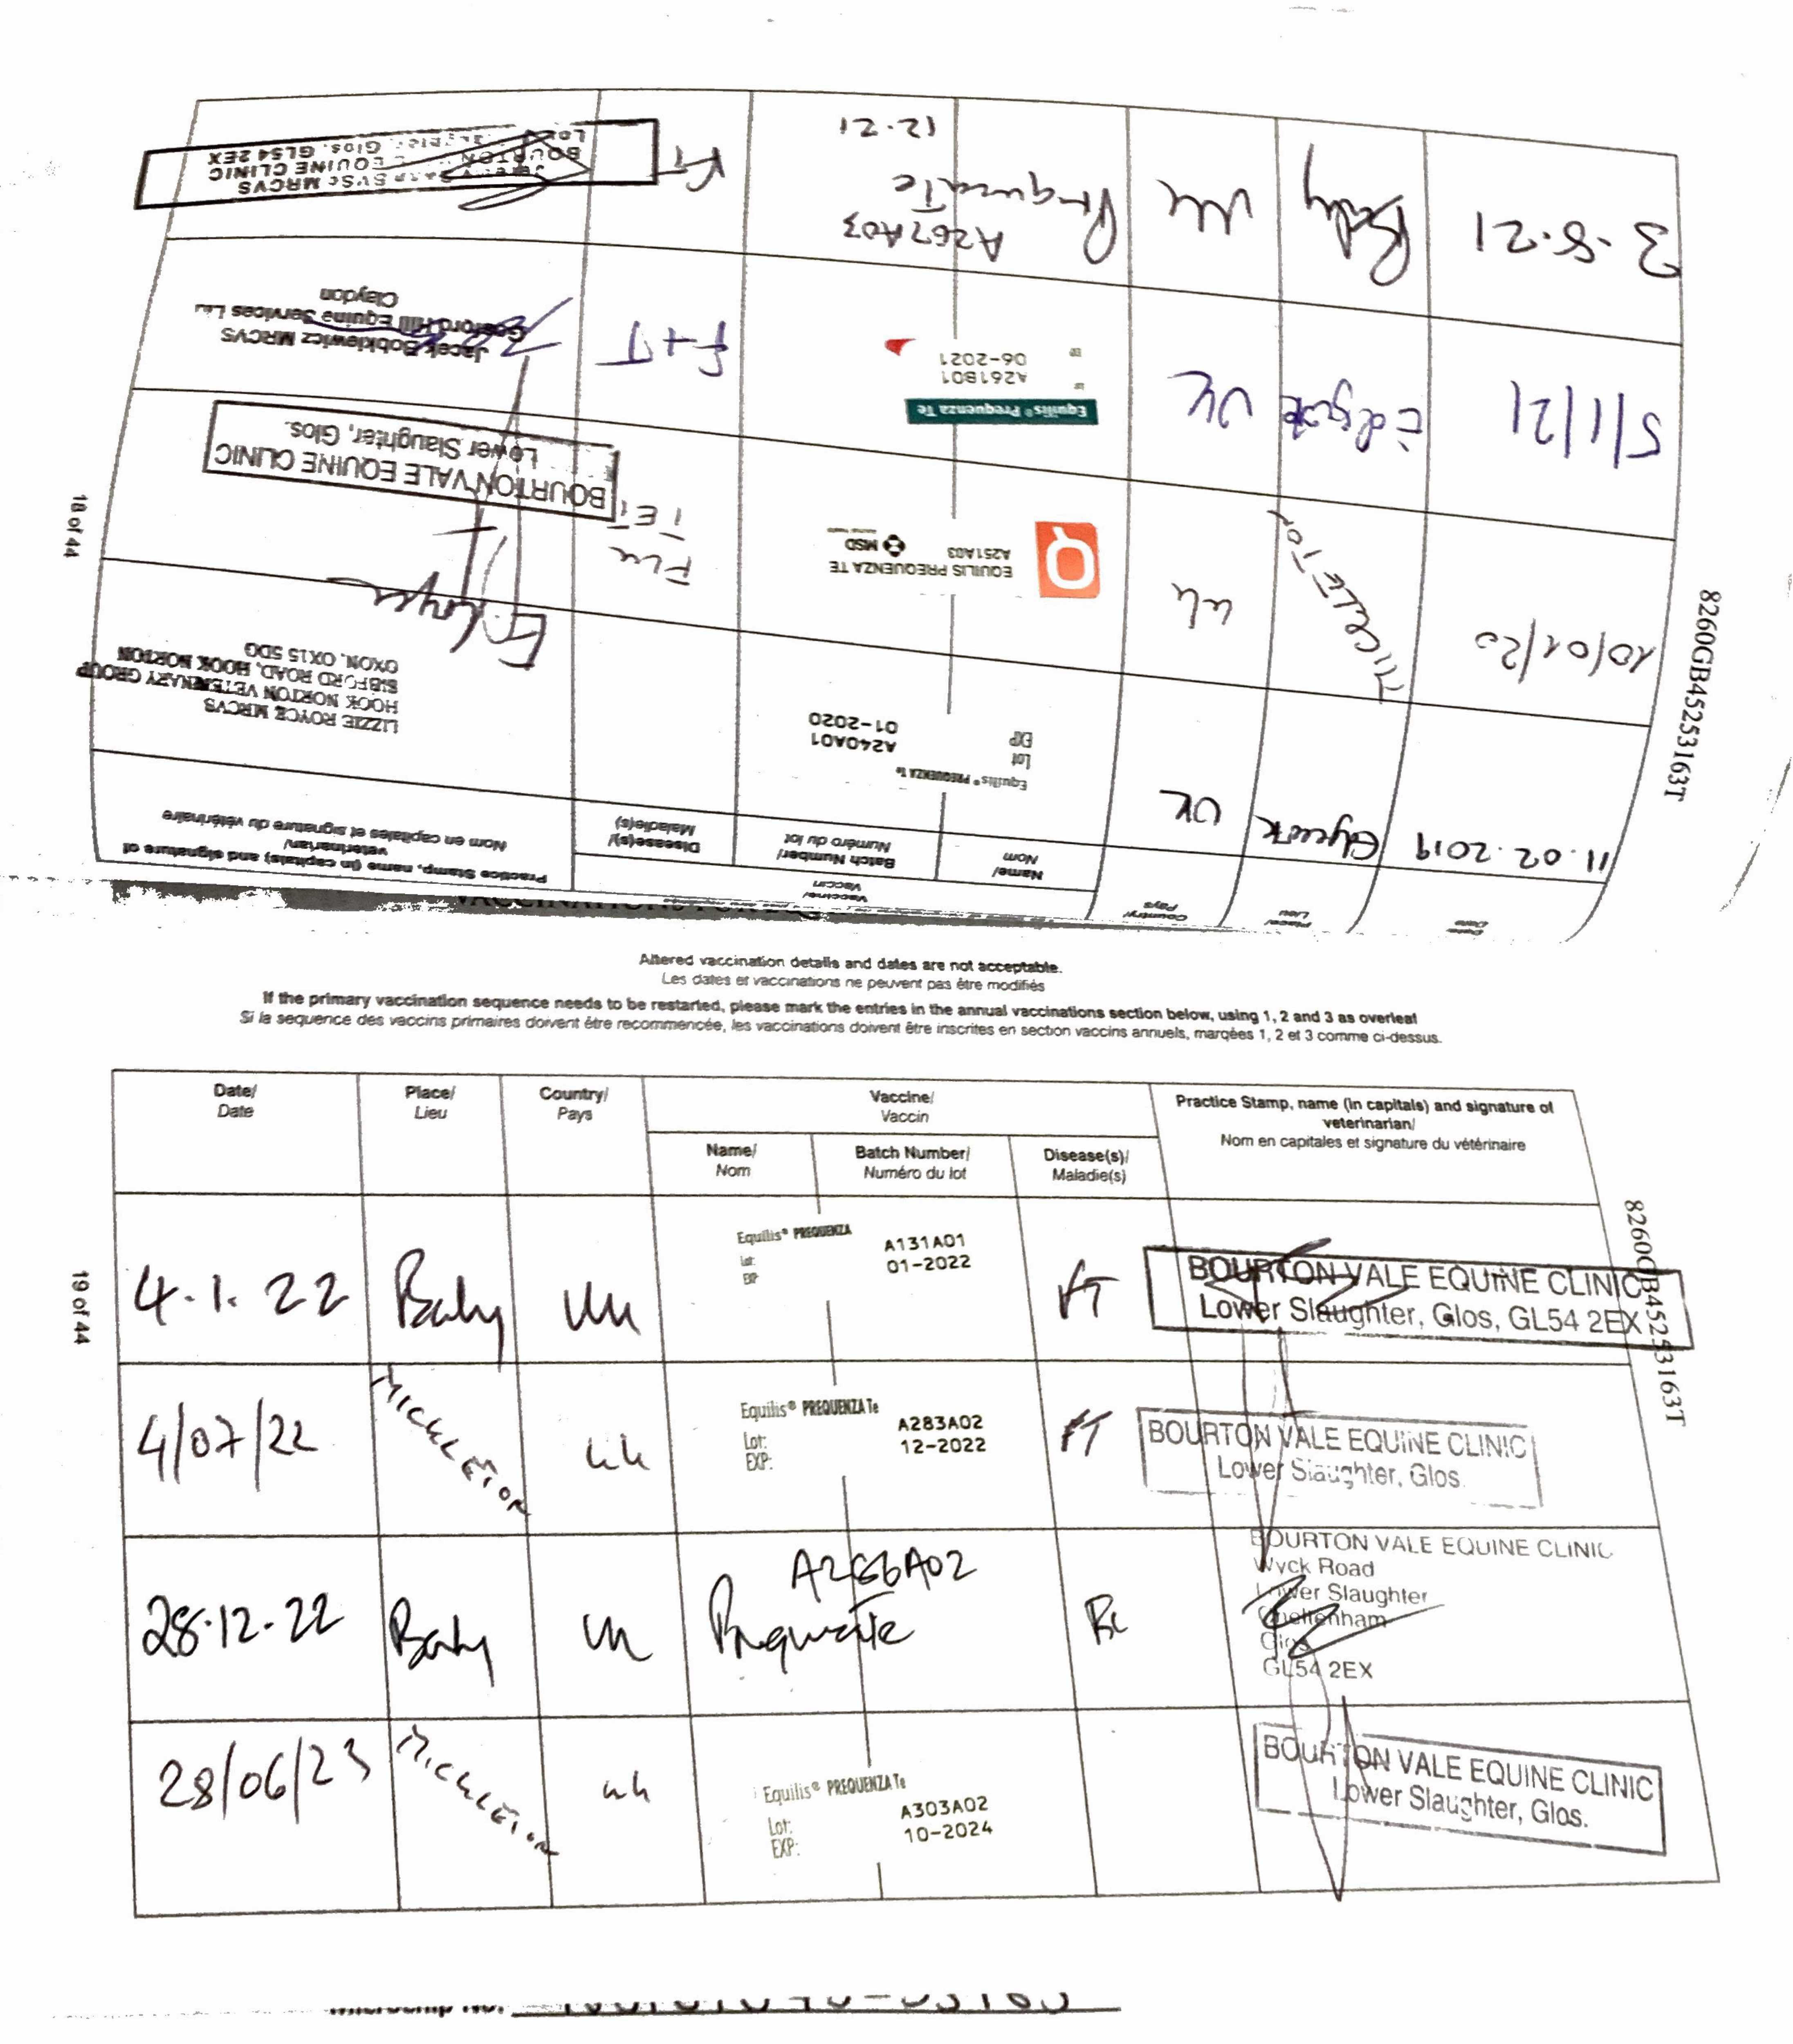 Date/
Date
Place/
Lieu
Country/
Pays
Vaccine/
Vaccin
Name/
Nom
Batch Number/
Numéro du lot
Disease(s)/
Maladie(s)
Practice Stamp, name (in capitals) and signature of
veterinarian/
Nom en capitales et signature du vétérinaire
11.02.2019
UK
Equilis® PREQUENZA Te
Lot
A240A01
EXP
01-2020
LIZZIE ROYCE MRCVS
HOOK NORTON VETERINARY GROUP
SIBFORD ROAD, HOOK NORTON
OXON. OX15 5DG
10/01/20
MICKLETON
uk
EQUILIS PREQUENZA TE
A251A03
MSD
Flu
TET
BOURTON VALE EQUINE CLINIC
Lower Slaughter, Glos.
5/1/21
UK
Equilis® Prequenza Te
A261B01
06-2021
F+T
Jacek Bobkiewicz MRCVS
Gosford Hill Equine Services Ltd
Claydon
3.8.21
UK
A267A03
PrequenzaTe
12.21
FT
MRCVS
BOURTON VALE EQUINE CLINIC
Glos. GL54 2EX
8260GB45253163T
18 of 44
Altered vaccination details and dates are not acceptable.
Les dates et vaccinations ne peuvent pas être modifiés
If the primary vaccination sequence needs to be restarted, please mark the entries in the annual vaccinations section below, using 1, 2 and 3 as overleaf
Si la sequence des vaccins primaires doivent être recommencée, les vaccinations doivent être inscrites en section vaccins annuels, marqées 1, 2 et 3 comme ci-dessus.
Date/
Date
Place/
Lieu
Country/
Pays
Vaccine/
Vaccin
Name/
Nom
Batch Number/
Numéro du lot
Disease(s)/
Maladie(s)
Practice Stamp, name (in capitals) and signature of
veterinarian/
Nom en capitales et signature du vétérinaire
4.1.22
UK
Equilis® PREQUENZA
Lot:
A131A01
EXP
01-2022
FT
BOURTON VALE EQUINE CLINIC
Lower Slaughter, Glos, GL54 2EX
4/07/22
MICKLETON
uk
Equilis® PREQUENZA Te
Lot:
A283A02
EXP:
12-2022
FT
BOURTON VALE EQUINE CLINIC
Lower Slaughter, Glos.
28.12.22
UK
A286A02
BOURTON VALE EQUINE CLINIC
Wyck Road
Lower Slaughter
Cheltenham
Glos
GL54 2EX
28/06/23
MICKLETON
uk
Equilis® PREQUENZA Te
Lot:
A303A02
EXP:
10-2024
BOURTON VALE EQUINE CLINIC
Lower Slaughter, Glos.
8260GB45253163T
19 of 44